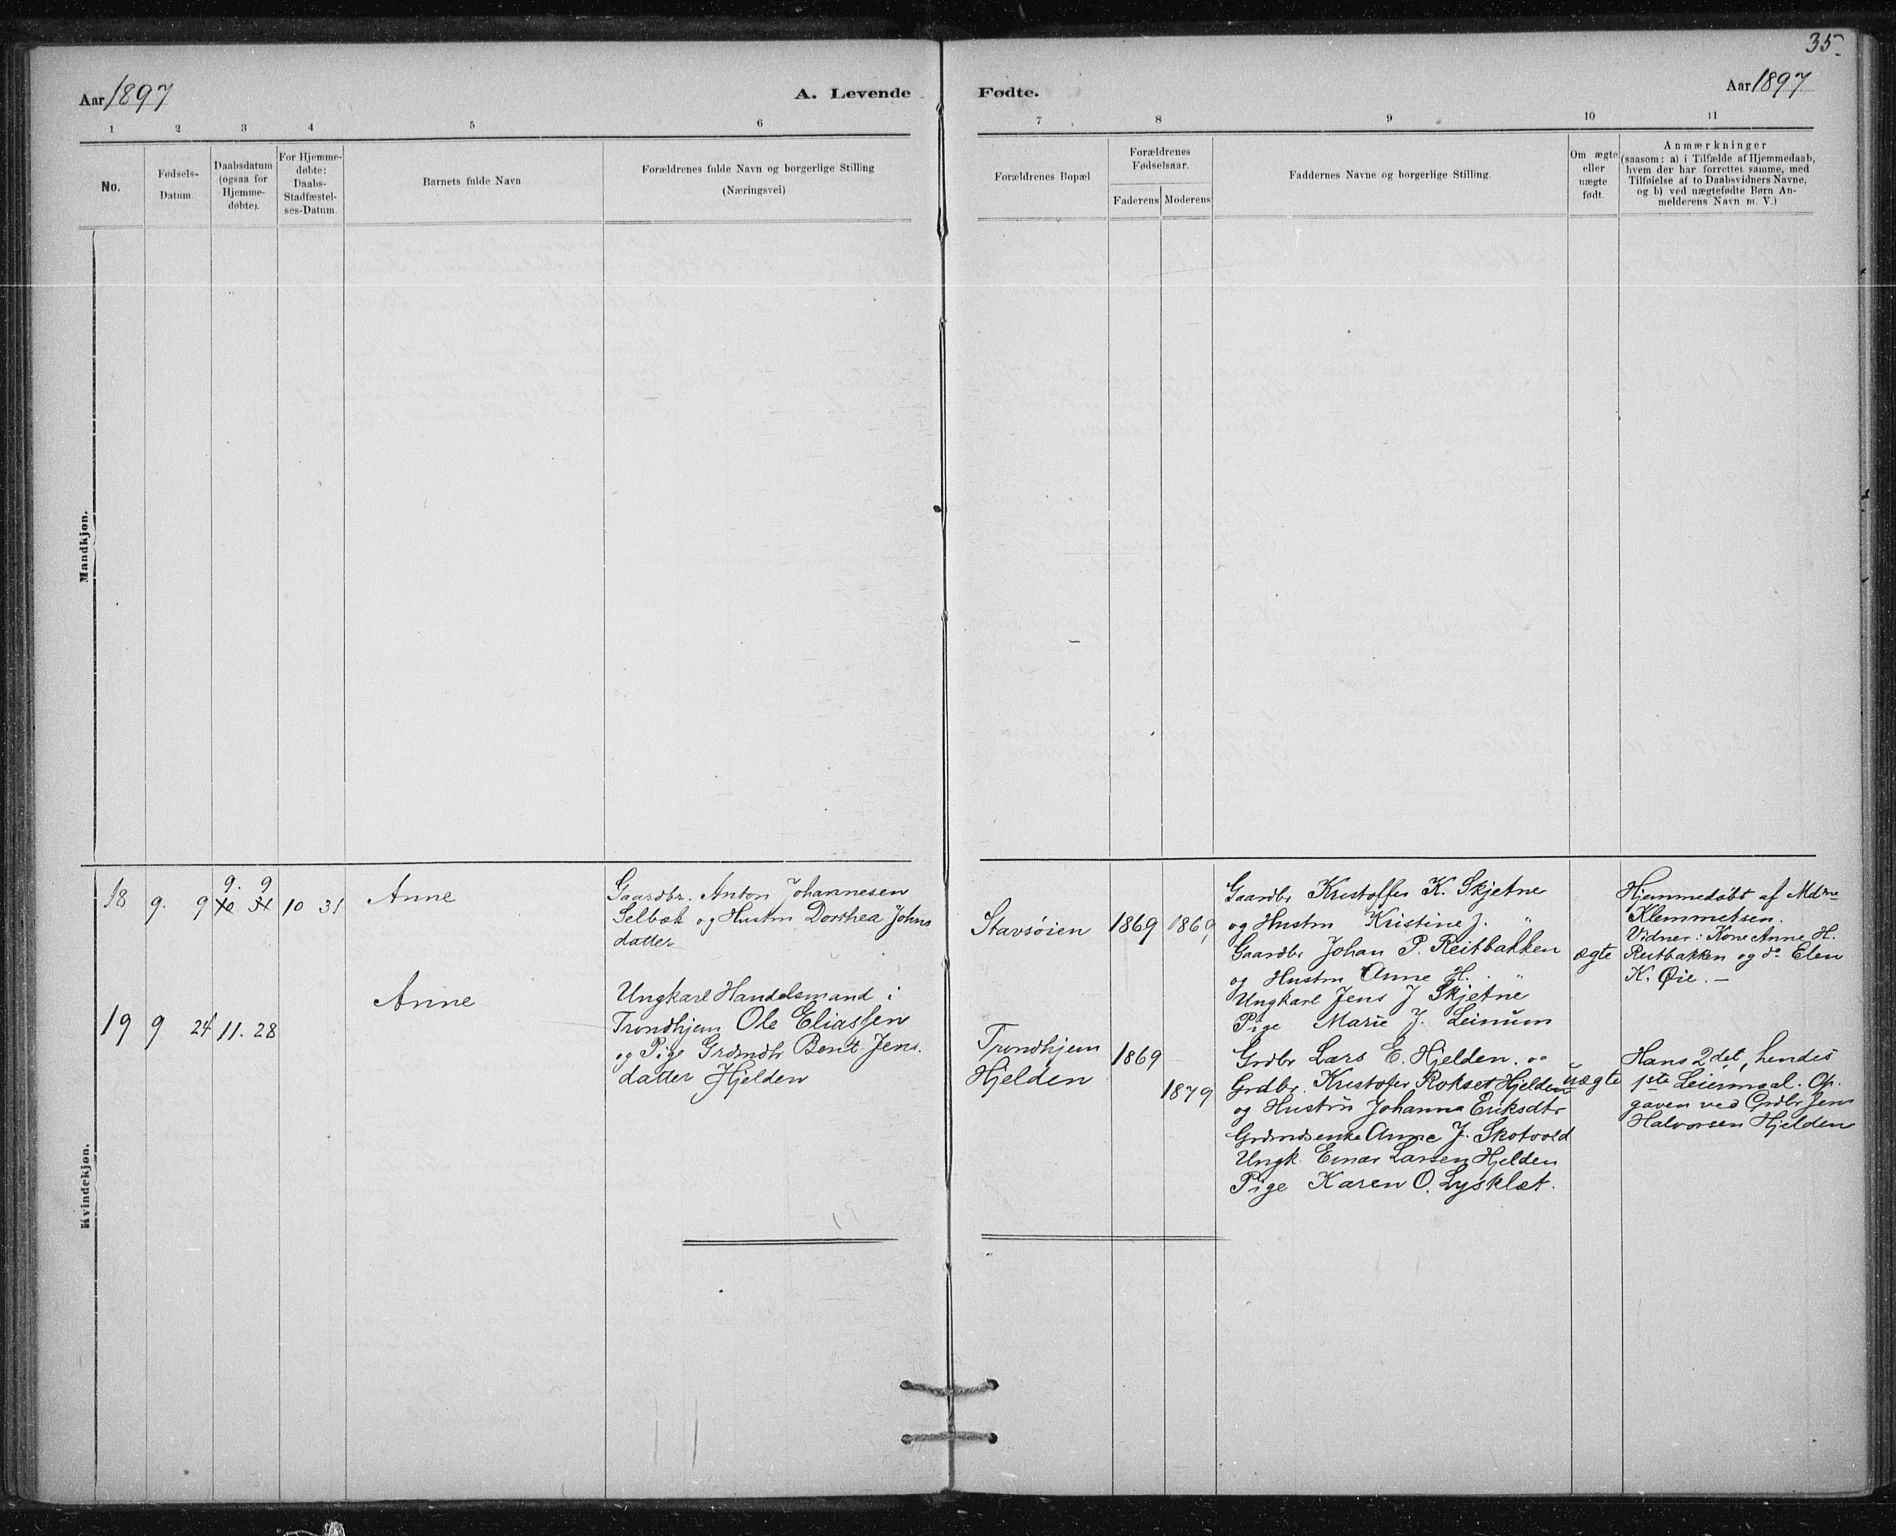 35.
Aar 1897
A. Levende Fødte.
Aar 1897
1 2 3 4 5 6 7 8 9 10 11
No.
Fødsels-
Datum.
Daabsdatum
(ogsaa for
Hjemme-
døbte).
For Hjemme-
døbte:
Daabs-
Stadfæstel-
ses-Datum.
Barnets fulde Navn
Forældrenes fulde Navn og borgerlige Stilling
(Næringsvei)
Forældrenes Bopæl
Forældrenes
Fødselsaar.
Faderens Moderens
Faddernes Navne og borgerlige Stilling.
Om ægte
eller
uægte
født.
Anmærkninger
(saasom: a) i Tilfælde af Hjemmedaab,
hvem der har forrettet samme, med
Tilføielse af to Daabsvidners Navne,
og b) ved uægtefødte Børn An-
melderens Navn m. V.)
Mandkjøn.
Kvindekjøn.
18
9. 9
9. 9
10 31
10 31
Anne
Gaardbr. Anton Johannesen
Selbæk og Hustru Dorthea Johns
datter
Stavsøien
1869 1869
Gaardbr Kristoffer K. Skjetne
og Hustru Kristine J. "
Gaardbr Johan P. Reitbakken
og Hustru Anne H. "
Ungkarl Jens J Skjetne
Pige Marie J. Leinum
ægte
Hjemmedøbt af Mdme
Klemmetsen.
Vidner: Kone Anne H.
Reitbakken og do Elen
K. Øie. —
19
9 24
11. 28
Anne
Ungkarl Handelsmand i
Trondhjem Ole Eliassen
og Pige Grdmdtr Berit Jens.
datter Hjelden
Trondhjem
Hjelden
1869
1879
Grdbr Lars E. Hjelden. og
Grdbr. Kristofer Rokset Hjelden
og Hustru Johanna Eriksdtr
Grdmdsenke Anne J. Skotvold
Ungk. Einar Larsen Hjelden
Pige Karen O. Lysklæt.
uægte
Hans 2det, hendes
1ste Leiermaal. Op.
gaven ved Grdbr Jens
Halvorsen Hjelden
19